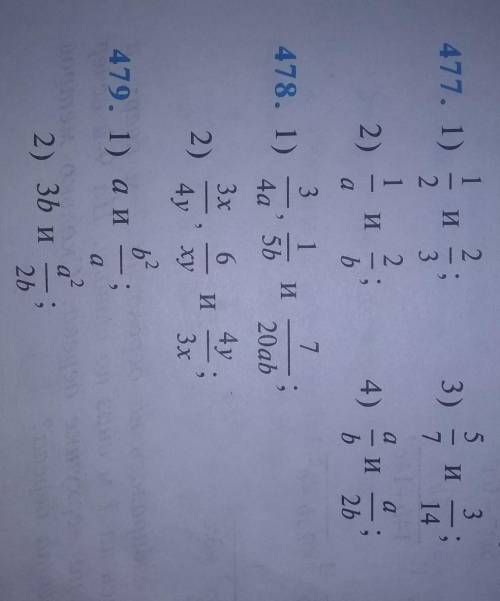 477. 1) 1/2 и 2/3; 3) 5/7 и 3/14;
2) 1/a и 2/b; 4) a/b и a/2b;
478. 1) 3/4a, 1/5b и 7/20ab;
2) 3x/4y, 6/xy и 4y/3x;
479. 1) a и b²/a;
2) 3b и a²/2b;